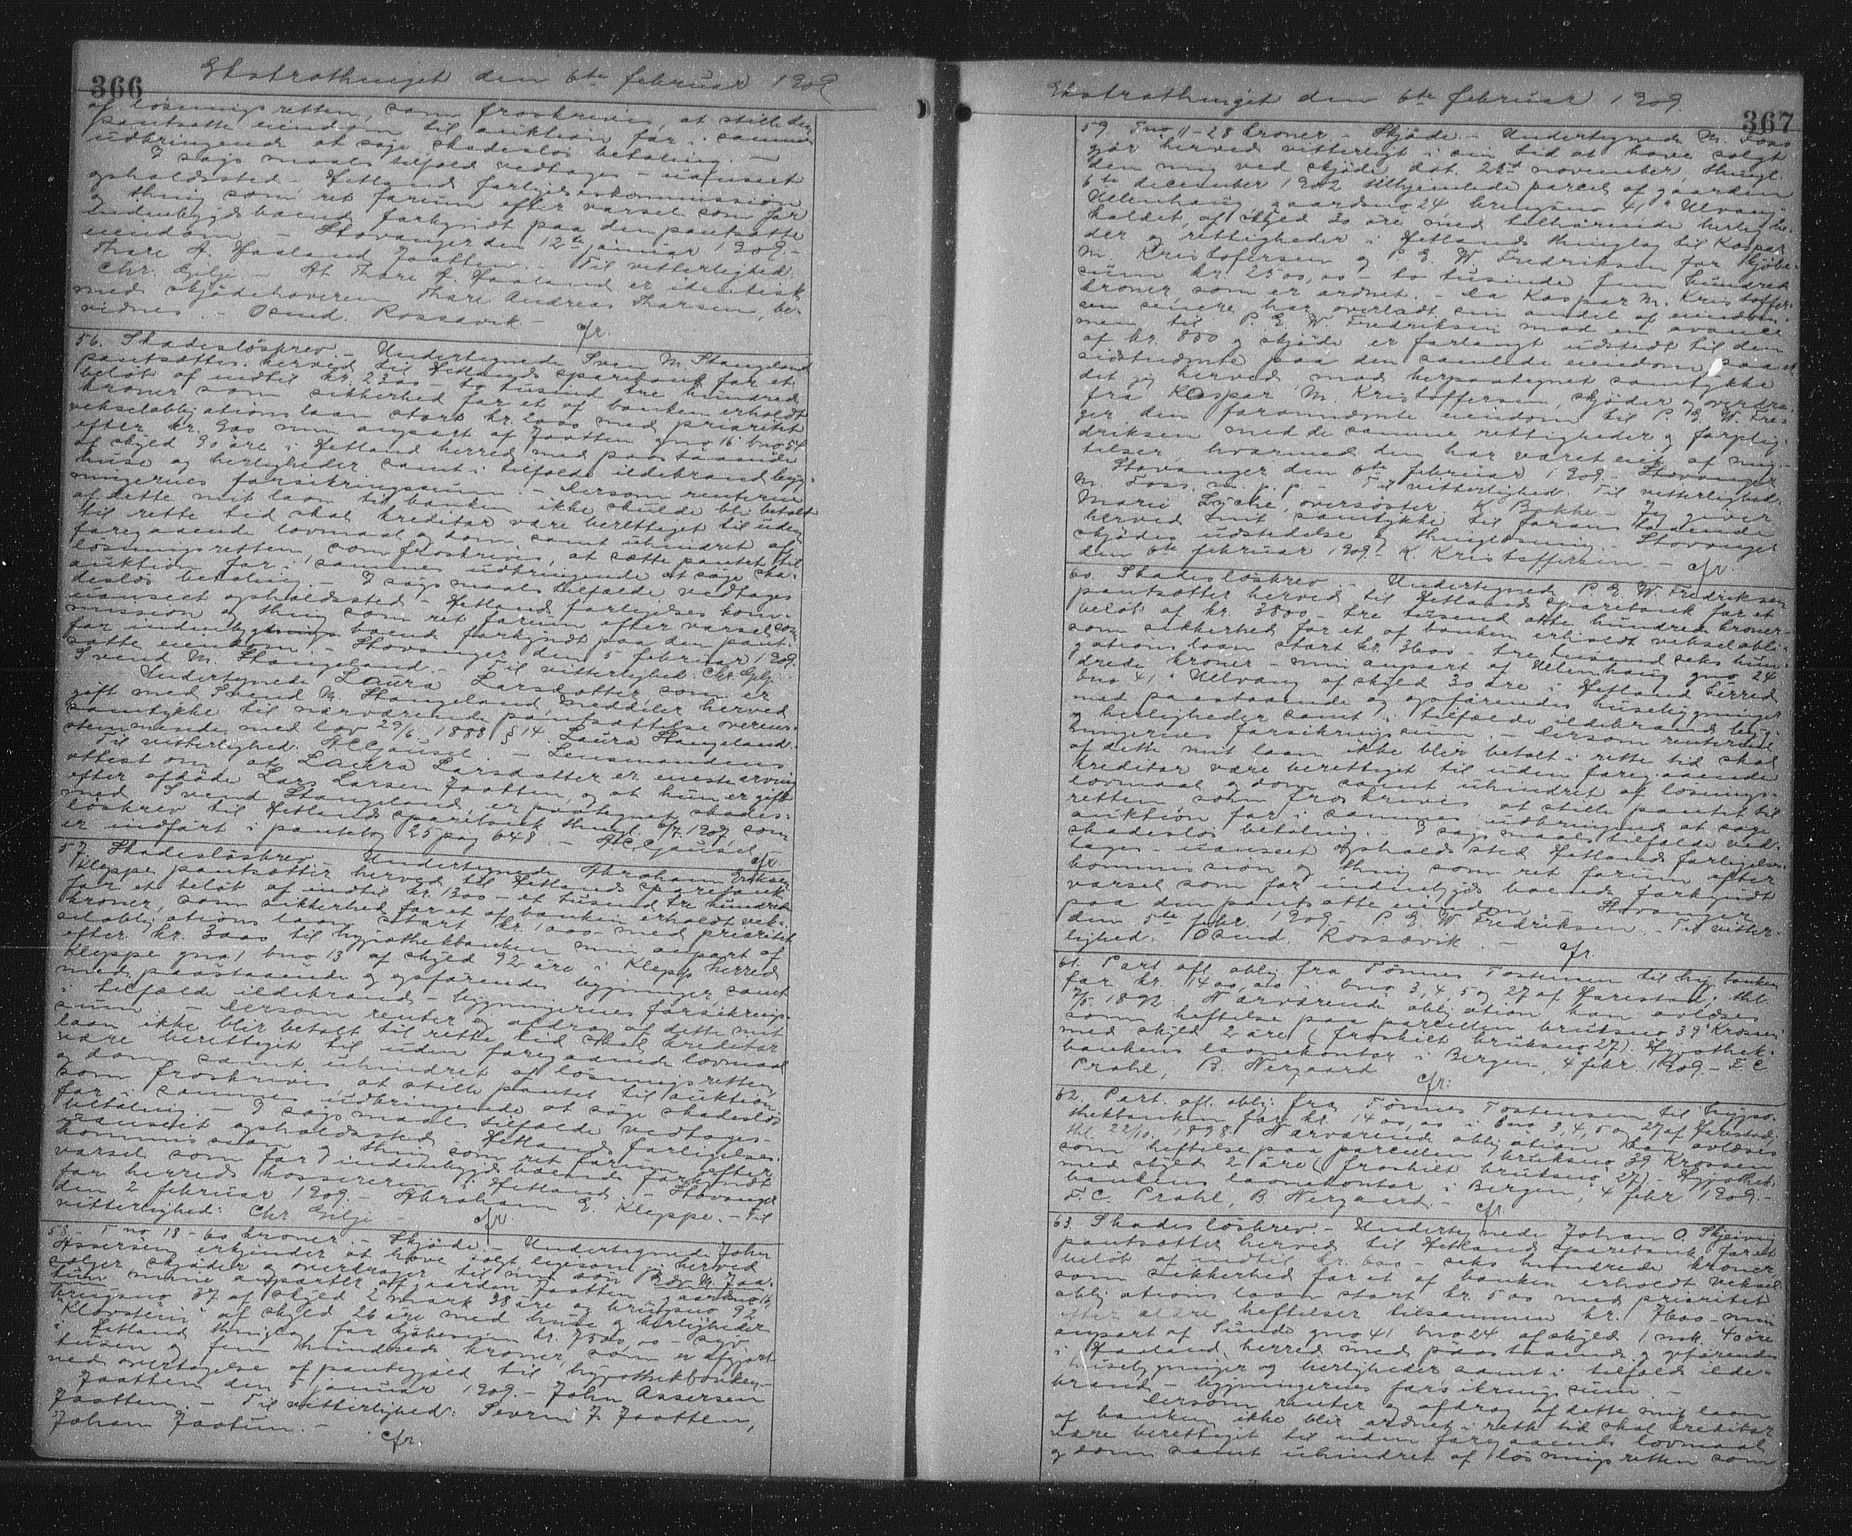 366
Ekstrathinget den 6te februar 1909
af løsningsretten, som froskrives, at stille den
pantsatte eiendom til auktion for i sammes
udbringende at søge skadesløs betaling. –
I sagsmaals tilfælde vedtages – uanseet
opholdssted – Hetland forligelseskommission
og thing som ret forum efter varsel som for
indenbygds boende forkyndt paa den pantsatte
eiendom. – Stavanger den 12te januar 1909. –
Thore A. Haaland Jaatten. – Til vitterlighed:
Chr. Gilje – At Thore A. Haaland er identisk
med skjødehaveren Thore Andreas Thorsen, be-
vidnes. – Osmd. Rossavik – cfr.
56. Skadesløsbrev – Undertegnede Sven M. Stangeland
pantsættes herved til Hetlands sparebank for et
beløb af indtil kr. 2300 – to tusind tre hundred
kroner som sikkerhed for et af banken erholdt
vekselobligationslaan stort kr. 2000 med prioritet
efter kr. 900 min anpart af Jaatten gno 16 bno 54
af skyld 90 øre i Hetland herred med paastaaende
huse og herligheder samt i tilfælde ildebrand byg-
ningernes forsikringssum. – Dersom renterne
af dette mit laan til banken ikke skulde bli betalt
til rette tid skal kreditor være berettiget til uden
foregaaende lovmaal og dom, samt uhindret af
løsningsretten, som froskrives, at sætte pantet til
auktion for i sammes udbringende at søge ska-
desløs betaling. – I sagsmaalstilfælde vedtages
uanseet opholdssted – Hetland forligelses kom-
mission og thing som ret forum efter varsel som
for indenbygds boende forkyndt paa den pant-
satte eiendom. – Stavanger den 5 februar 1909.
Svend M. Stangeland. – Til vitterlighed: Chr. Gilje.
Undertegnede Laura Larsdatter som er
gift med Svend M. Stangeland, meddeler herved
samtykke til nærværende pantsættelse overens-
stemmende med lov 29/6-1888 § 14. Laura Stangeland.
Til vitterlighed: HCGausel – Lensmandens
attest om at Laura Larsdatter er enestearving
efter afdøde Lars Larsen Jaatten, og at hun er gift
med Svend Stangeland, er paategnet skades-
løsbrev til Hetlands sparebank thingl. 6/7 1907 som
er indført i pantebog 25 pag 648. – HCGausel – cfr
57. Skadesløsbrev – Undertegnede Abraham Eriksen
Kleppe pantsætter herved til Hetlands sparebank
for et beløb af indtil kr. 1300 – et tusend tre hundrede
kroner, som sikkerhed for et af banken erholdt vek-
selobligationslaan stort kr. 1000 – med prioritet
efter kr. 3000 til hypothekbanken min anpart af
Kleppe gno 1 bno 13 af skyld 92 øre i Klepp herred
med paastaaende og opførendes bygninger samt
i tilfælde ildebrand – bygningernes forsikrings-
sum. – Dersom renter og afdrag af dette mit
laan ikke blir betalt til rette tid skal kreditor
være berettiget til uden foregaaende lovmaal
og dom, samt uhindret af løsningsretten,
som froskrives at stille pantet til auktion
for i sammes udbringende at søge skadesløs
betaling. – I sagsmaals tilfælde vedtages –
uanseet opholdssted – Hetland forligelses-
kommission og thing som ret forum efter
varsel som for indenbygds boende forkyndt
for herreds kassereren i Hetland. – Stavanger
den 2 februar 1909. – Abraham E. Kleppe. – Til
vitterlighed: Chr Gilje – cfr
58. – Tno 18 – 60 kroner. – Skjøde – Undertegnede John
Assersen erkjender at have solgt ligesom jeg herved
sælger skjøder og overdrager til min søn Jaa-
tun mine anparter af gaarden Jaatten gaardsno 16,
brugsno 37 af skyld 2 mark 38 øre og brugsno 92
"Klovstein" af skyld 26 øre med huse og herligheder
i Hetland thinglag for kjøbesum kr. 7500,00 – syv
tusen og fem hundrede kroner, som er afgjort
ved overtagelse af pantegjæld til hypothekbanken –
Jaatten den 5 januar 1909. – John Assersen
Jaatten. – Til vitterlighed: Severin J. Jaatten,
Johan Jaatun. – cfr.
Ekstrathinget den 6te februar 1909.
367
59. Tno 11 – 28 kroner – Skjøde – Undertegnede M. Foss
gjør herved vitterligt i sin tid at have solgt
den mig ved skjøde dat. 28de november, thingl.
6te december 1902 tilhjemlede parcel af gaarden
Ullenhaug, gaardsno 24 brugsno 41 "Ulvang"
holdet, af skyld 30 øre med tilhørende herlighe-
der og rettigheder i Hetlands thinglag til Kaspar
M. Kristofersen og P. E. W. Fredriksen for kjøbe-
sum kr. 2500,00 – to tusinde fem hundred
kroner som er ordnet. – Da Kaspar M. Kristoffer-
sen senere har overladt sin andel af eiendom-
men til P. E. W. Fredriksen mod en avance
af kr. 850 og skjøde er forlangt udstedt til den
sidstnævnte paa den samlede eiendom, saa er
det jeg herved, med herpaategnet samtykke
fra Kaspar M. Kristoffersen, skjøder og overdra-
ger den forannævnte eiendom til P. E. W. Fre-
driksen med de samme rettigheder og forplig-
telser, hvormed den har været eiet af mig –
Stavanger den 6te februar 1909. Stavanger
M. Foss, m. p. p – Til vitterlighed: Til vitterlighed:
Marie Lyche, oversøster. K. Bakke. – Jeg giver
herved mit samtykke til foranstaaende
skjødes udstedelse og thinglæsning. – Stavanger
den 6te februar 1909. K. Kristoffersen. – cfr
60. Skadesløsbrev. – Undertegnede P E W. Fredriksen
pantsætter herved til Hetlands sparebank for et
beløb af kr. 3800 – tre tusend otte hundred kroner –
som sikkerhed for et af banken erholdt vekselobli-
gationslaan stort kr. 3600 – tre tusend seks hun-
drede kroner – min anpart af Ullenhaug gno 24
bno 41 "Ullvang" af skyld 30 øre i Hetland herred
med paastaaende og opførendes husebygninger
og herligheder samt i tilfælde ildebrand byg-
ningernes forsikringssum. – Dersom renterne
af dette mit laan ikke blir betalt i rette tid skal
kreditor være berettiget til uden foregaaende
lovmaal og dom samt uhindret af løsnings-
retten, som froskrives at stille pantet til
auktion for i sammes udbringende at søge
skadesløs betaling. – I sagsmaals tilfælde ved-
tages – uanseet opholdssted Hetland forligelses-
kommission og thing som ret forum efter
varsel som for indenbygds boende forkyndt
paa den pantsatte eiendom. – Stavanger
den 5te febr. 1909. P. E. W. Fredriksen. – Til vitter-
lighed: Osmd Rossavik. – cfr
61. Part. afl. oblig. fra Tønnes Tostensen til hyp. banken
for kr. 1400,00 i bno 3, 4, 5 og 27 af Harestad; thl.
7/5 1892. Nærværende obligation kan avløses
som heftelse paa parcellen bruksno 39 "Krossen"
med skyld 2 øre (froskilt bruksno 27). Hypothek-
bankens laanekontor i Bergen, 4 febr. 1909 – F C
Prahl, B. Nergaard cfr.
62. Part. afl. oblig. fra Tønnes Tostensen til hypo-
thekbanken for kr. 1400,00 i bno 3, 4, 5 og 27 af Harestad;
thl. 22/10 1898. Nærværende obligation kan avløses
som heftelse paa parcellen bruksno 39 Krossen
med skyld 2 øre (froskilt bruksno 27). – Hypothek-
bankens laanekontor i Bergen, 4 febr. 1909. –
F. C. Prahl, B Nergaard. – cfr.
63. Skadesløsbrev – Undertegnede Johan O. Skjeiveg
pantsætter herved til Hetland sparebank for et
beløb af indtil kr. 600 – seks hundrede kroner,
som sikkerhed for et af banken erholdt veksel
obligationslaan stort kr. 500 med prioritet
efter ældre heftelser tilsammen kr. 7600 – min
anpart af Sunde gno 41 bno 24 af skyld 1 mrk. 40 øre
i Haaland herred med paastaaende og opførendes
husebygninger og herligheder samt i tilfælde ilde-
brand – bygningernes forsikringssum. –
Dersom renter og afdrag af dette mit laan
af banken ikke blir ordnet i rette tid skal kreditor
være berettiget til uden foregaaende lovmaal
og dom samt uhindret af løsningsretten som